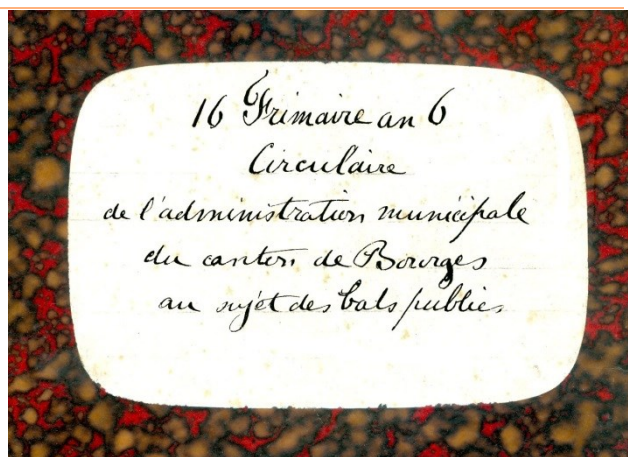 16 Frimaire an 6
Circulaire
de l'administration municipale
du canton de Bourges
au sujet des bals publics